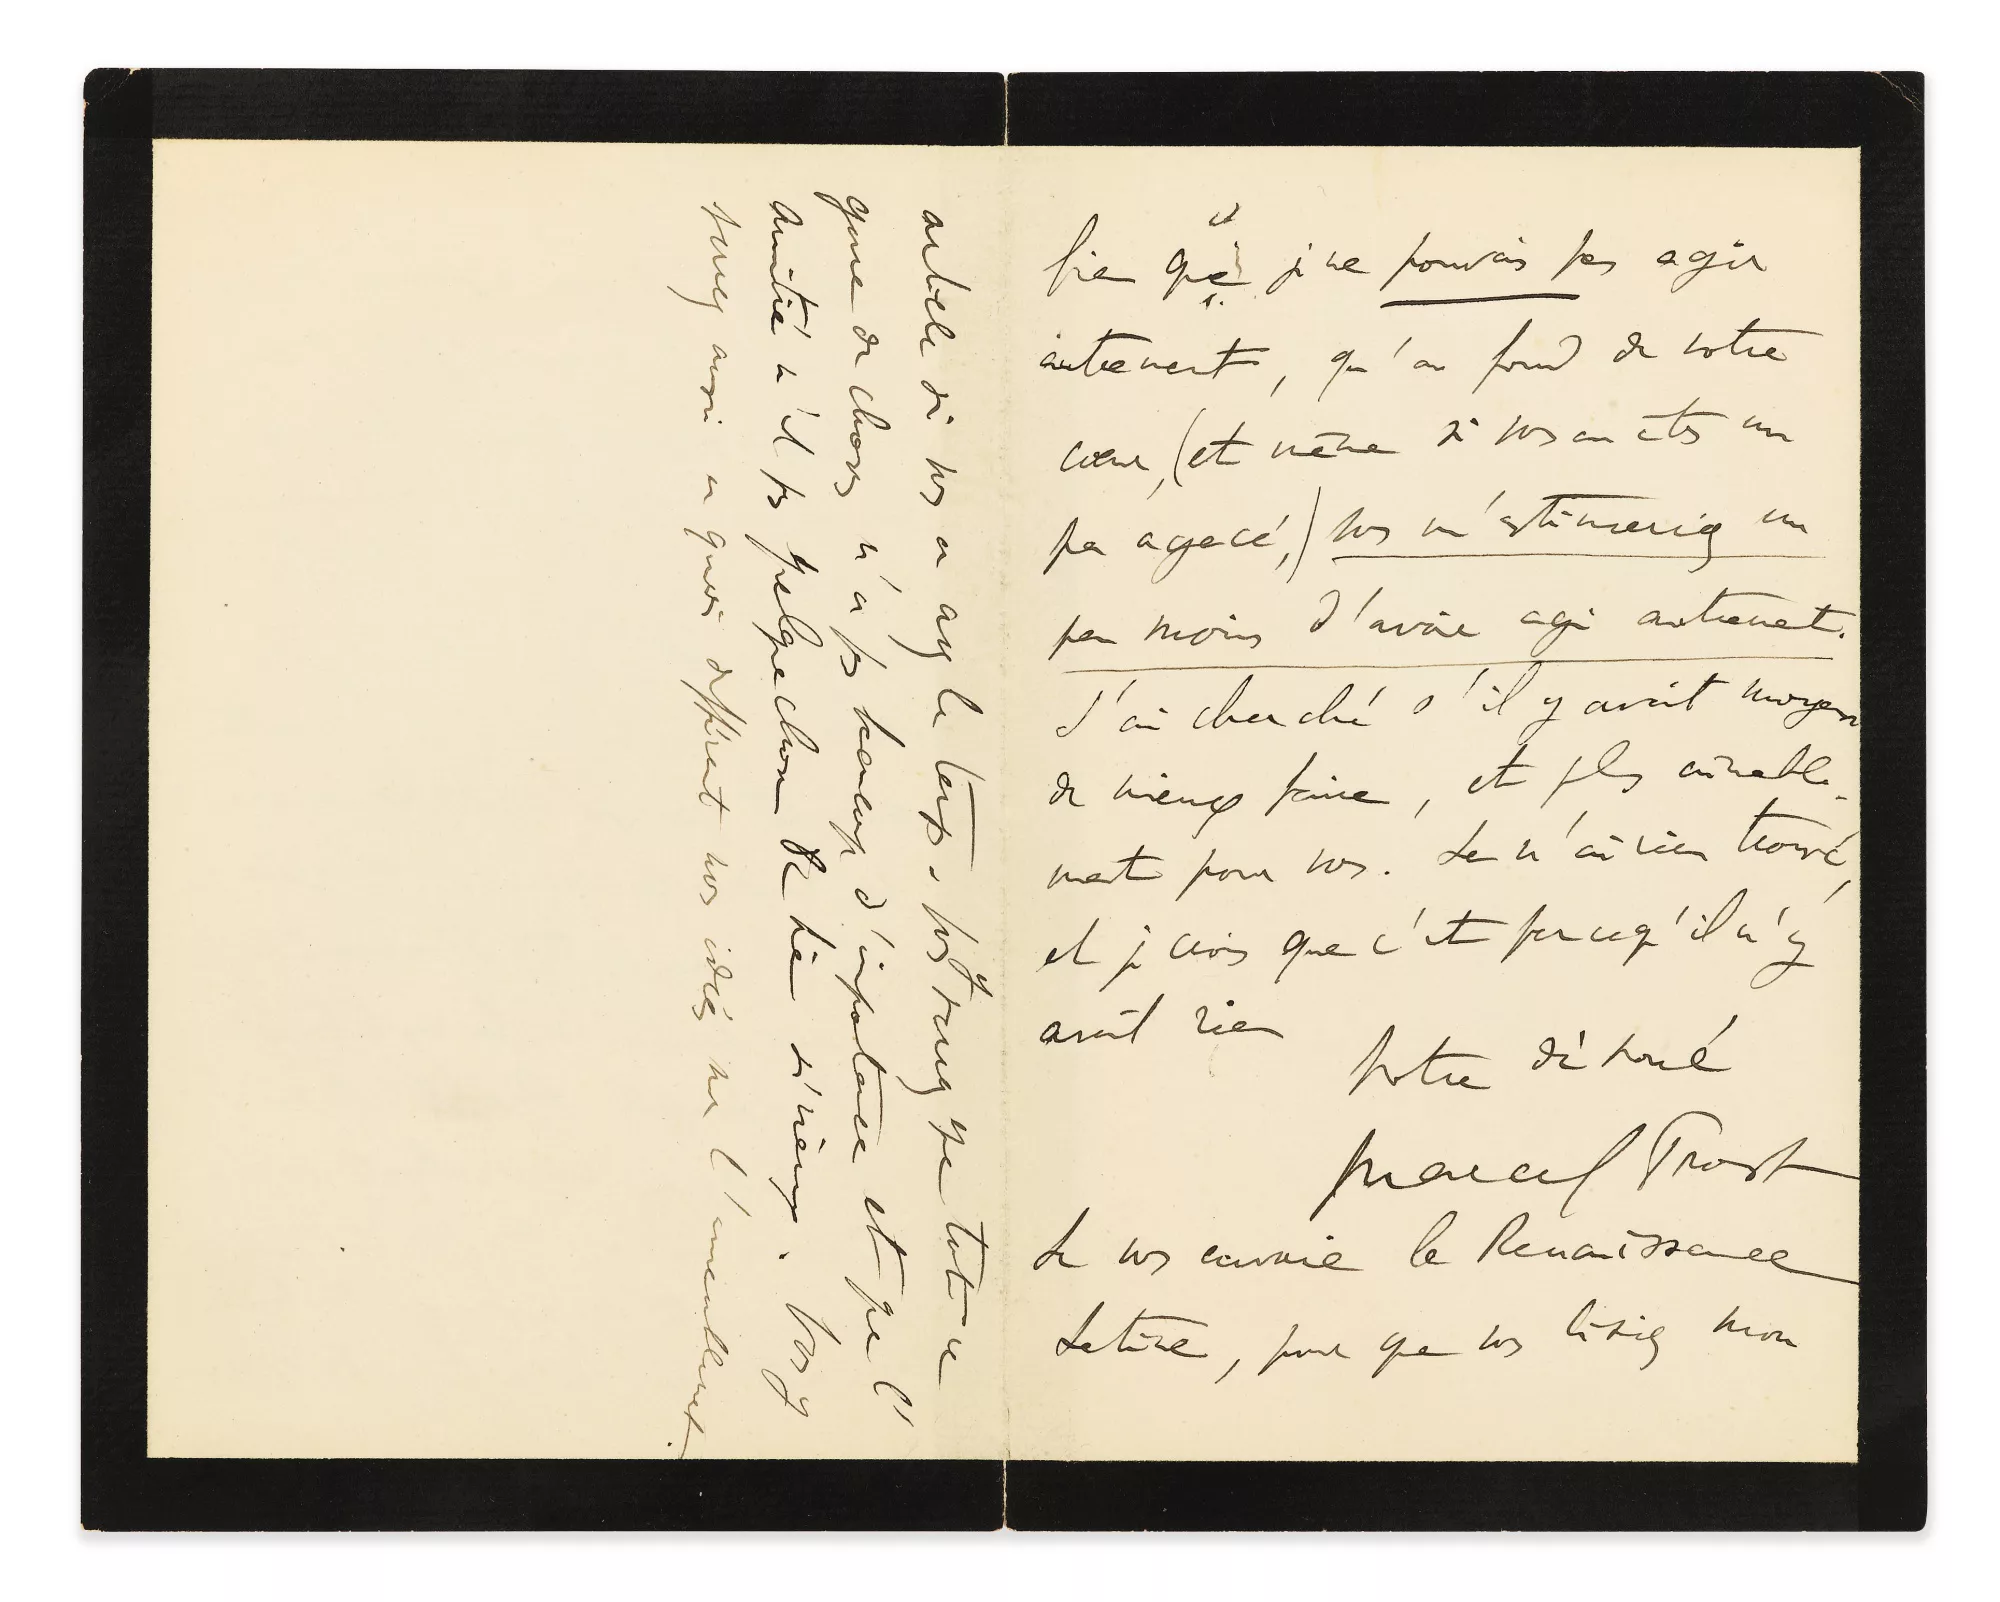 bien que je ne pouvais pas agir
autrement, qu'au fond de votre
cœur, (et même si vous en êtes un
peu agacé,) vous m'estimeriez un
peu moins d'avoir agi autrement.
J'ai cherché s'il y avait moyen
de mieux faire, et plus aimable-
ment pour vous. Je n'ai rien trouvé,
et je crois que c'est parce qu'il n'y
avait rien
Votre dévoué
Marcel Proust
Je vous envoie la Renaissance
Latine, pour que vous lisiez mon
article si vous en avez le temps. Vous y verrez que tout ce
genre de choses n'a pas beaucoup d'importance et que l'
amitié a quelque chose de Vous y
verrez aussi en quoi diffèrent nos idées sur l'ameublement.